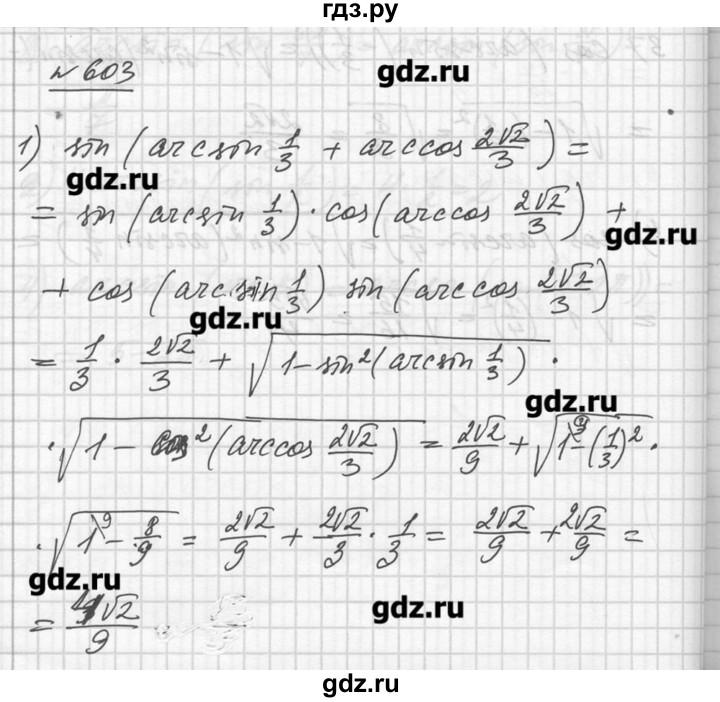 гдз.ру
№ 603
gdz.ru
1) sin (arcsin 1/3 + arccos 2√2/3) =
gdz.ru
= sin (arcsin 1/3) · cos (arccos 2√2/3) +
gdz.ru
+ cos (arcsin 1/3) sin (arccos 2√2/3)
gdz.ru
= 1/3 · 2√2/3 + √(1 - sin²(arcsin 1/3)) ·
gdz.ru
· √(1 - cos²(arccos 2√2/3)) = 2√2/9 + √(1 - (1/3)²) ·
· √(1 - 8/9) = 2√2/9 + 2√2/3 · 1/3 = 2√2/9 + 2√2/9 =
gdz.ru
= 4√2/9
gdz.ru
gdz.ru